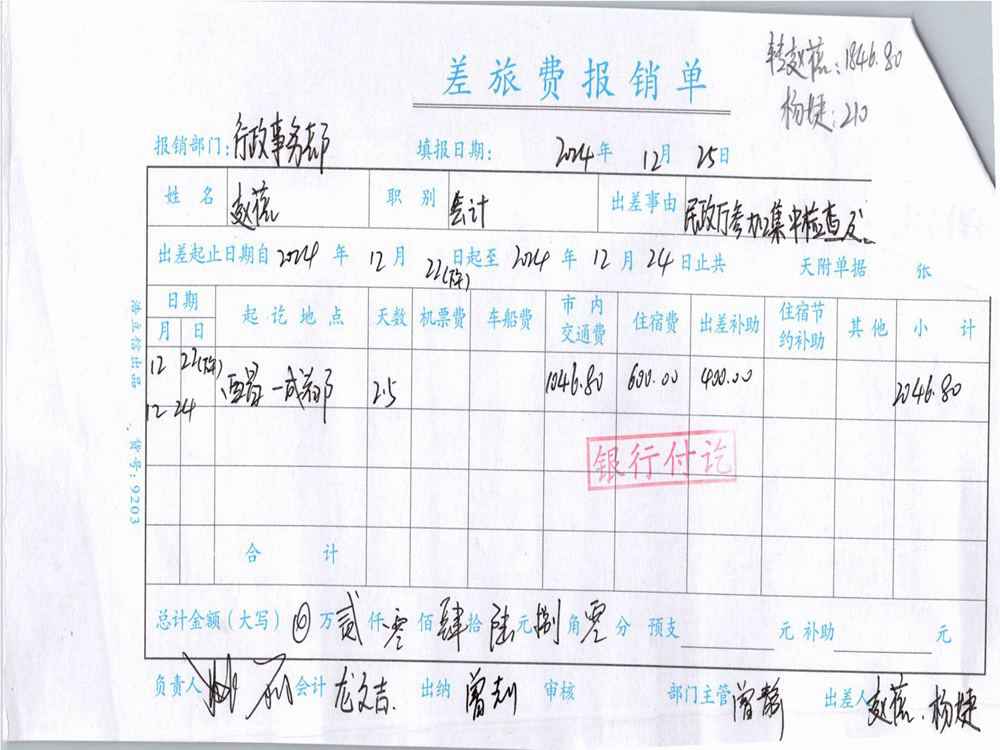 转赵蕊:1846.80
杨婕:210
差旅费报销单
报销部门:行政事务部 填报日期: 2024年 12月 25日
姓名 赵蕊 职别 会计 出差事由 民政厅参加集中检查
出差起止日期自 2024 年 12 月 22(下午) 日起至 2024 年 12 月 24 日止共 天附单据 张
日期 起讫地点 天数 机票费 车船费 市内交通费 住宿费 出差补助 住宿节约补助 其他 小计
月 日
12 22(下午) 西昌—成都 2.5 1046.80 600.00 400.00 2046.80
12 24
银行付讫
合计
总计金额(大写) 万贰仟零佰肆拾陆元捌角零分 预支 元 补助 元
负责人 会计 龙文吉 出纳 曾利 审核 部门主管 曾静 出差人 赵蕊、杨婕
浩立信出品 货号:9203